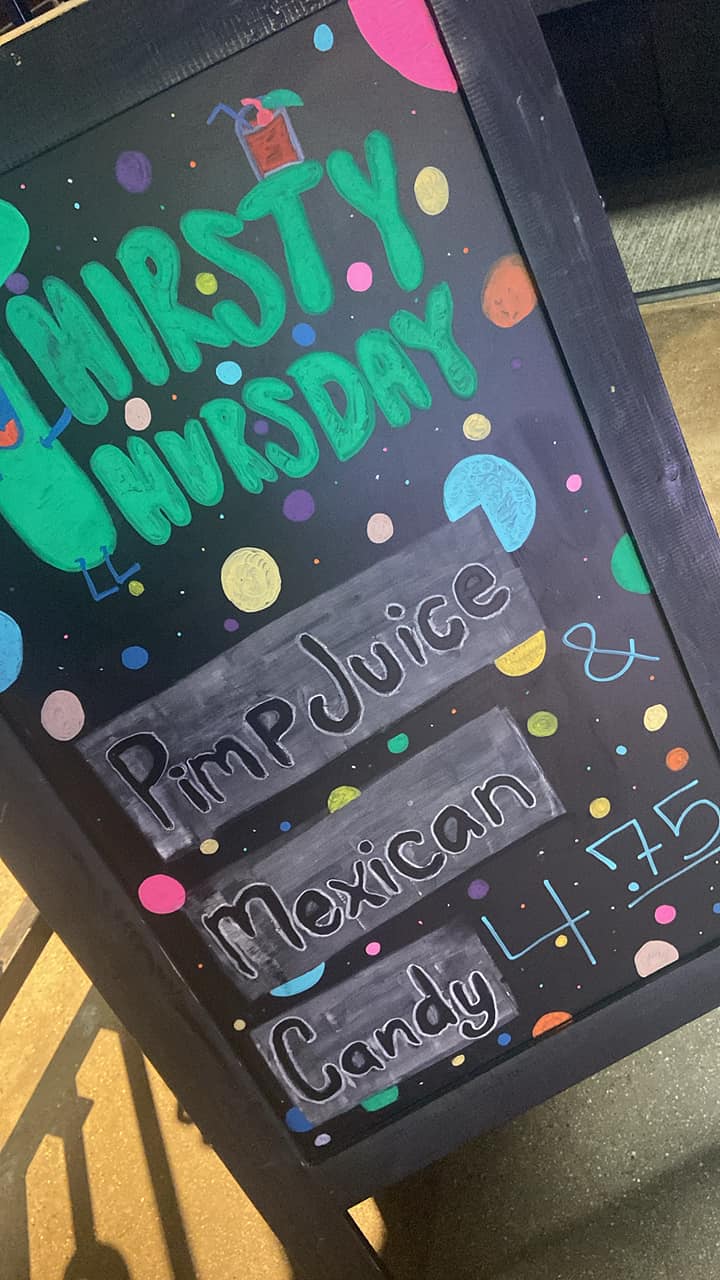 THIRSTY
THURSDAY
PimpJuice &
Mexican
Candy 4.75